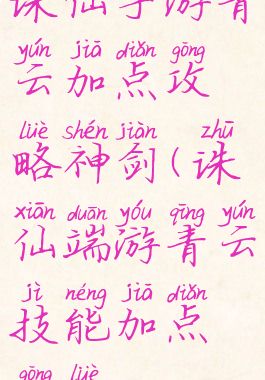 诛仙手游青
yún jiā diǎn gōng
云加点攻
lüè shén jiàn zhū
略神剑(诛
xiān duān yóu qīng yún
仙端游青云
jì néng jiā diǎn
技能加点
gōng lüè